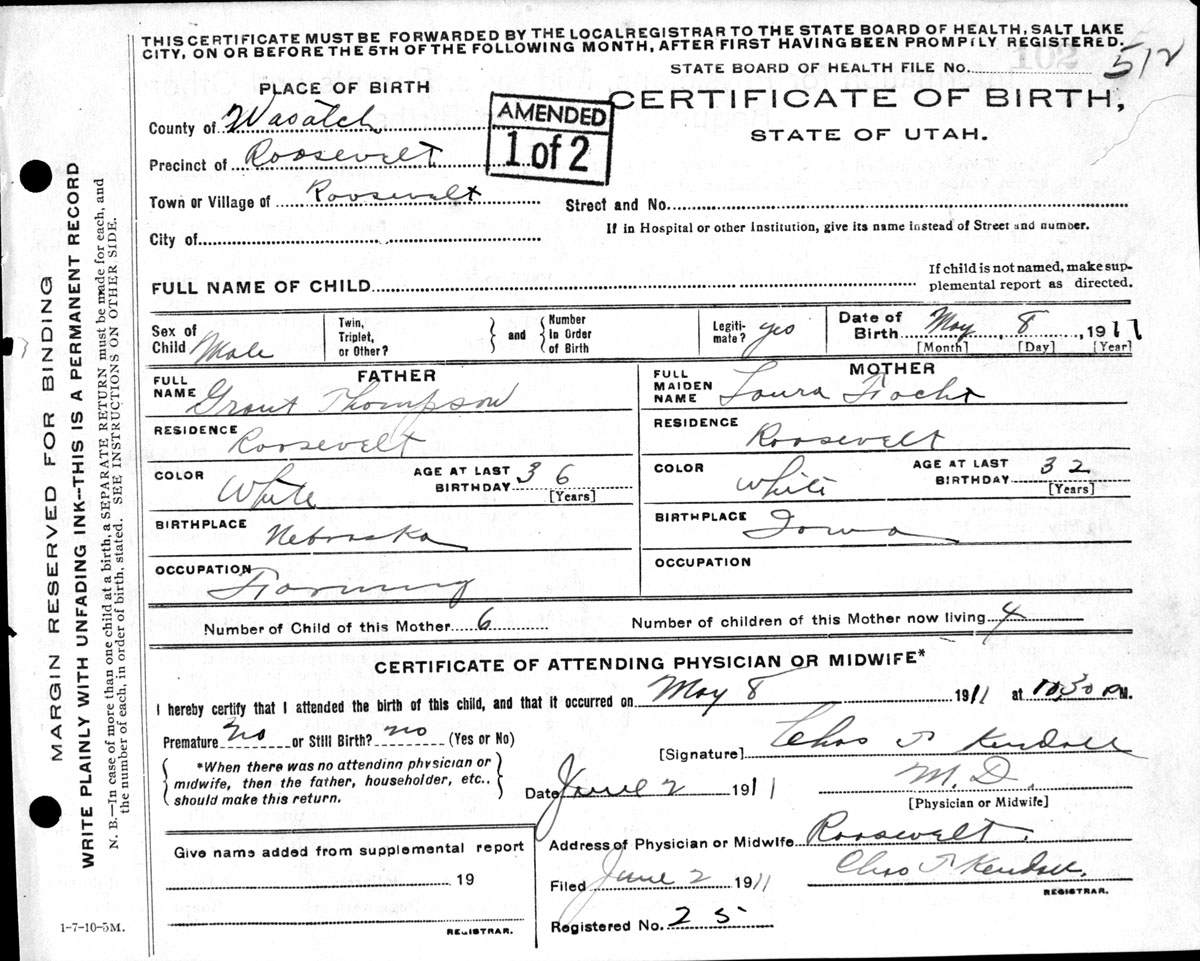 THIS CERTIFICATE MUST BE FORWARDED BY THE LOCALREGISTRAR TO THE STATE BOARD OF HEALTH, SALT LAKE
CITY, ON OR BEFORE THE 5TH OF THE FOLLOWING MONTH, AFTER FIRST HAVING BEEN PROMPTLY REGISTERED.
STATE BOARD OF HEALTH FILE No. 512
PLACE OF BIRTH
CERTIFICATE OF BIRTH,
STATE OF UTAH.
AMENDED
1 of 2
County of Wasatch
Precinct of Roosevelt
Town or Village of Roosevelt
Street and No.
City of
If in Hospital or other Institution, give its name instead of Street and number.
FULL NAME OF CHILD
If child is not named, make sup-
plemental report as directed.
Sex of
Child Male
Twin,
Triplet,
or Other?
and
Number
In Order
of Birth
Legiti-
mate? yes
Date of
Birth May 8, 1911
[Month] [Day] [Year]
FATHER
FULL
NAME Grant Thompson
RESIDENCE Roosevelt
COLOR White
AGE AT LAST
BIRTHDAY 36
[Years]
BIRTHPLACE Nebraska
OCCUPATION Farming
MOTHER
FULL
MAIDEN
NAME Laura
RESIDENCE Roosevelt
COLOR White
AGE AT LAST
BIRTHDAY 32
[Years]
BIRTHPLACE Iowa
OCCUPATION
Number of Child of this Mother 6
Number of children of this Mother now living 4
CERTIFICATE OF ATTENDING PHYSICIAN OR MIDWIFE*
I hereby certify that I attended the birth of this child, and that it occurred on May 8 1911 at 10,30 P M.
Premature no or Still Birth? no (Yes or No)
*When there was no attending physician or
midwife, then the father, householder, etc.,
should make this return.
[Signature] Chas J Kendall
M.D.
[Physician or Midwife]
Date June 2 1911
Give name added from supplemental report
19
REGISTRAR.
Address of Physician or Midwife Roosevelt.
Filed June 2 1911
Chas J Kendall.
REGISTRAR.
Registered No. 25
1-7-10-5M.
MARGIN RESERVED FOR BINDING
WRITE PLAINLY WITH UNFADING INK--THIS IS A PERMANENT RECORD
N. B.—In case of more than one child at a birth, a SEPARATE RETURN must be made for each, and
the number of each, in order of birth, stated. SEE INSTRUCTIONS ON OTHER SIDE.